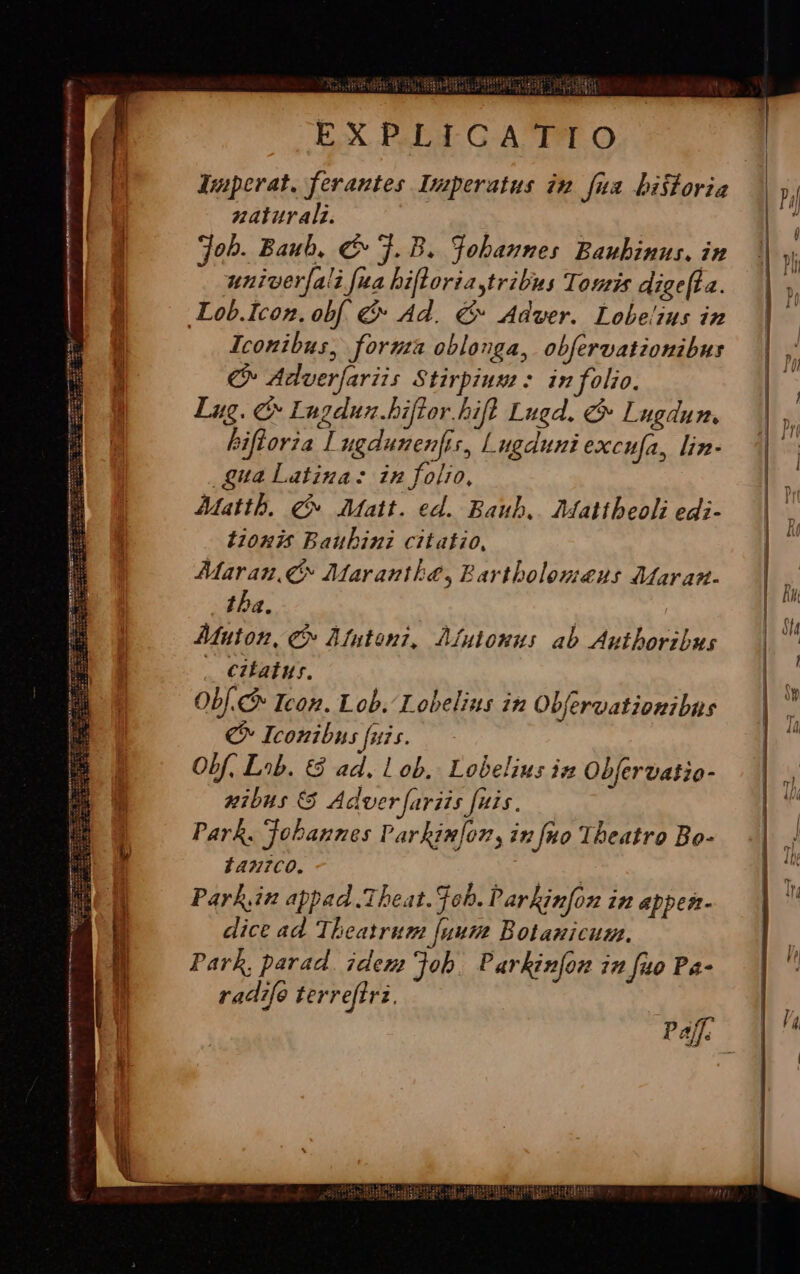 EXPLICATIO
Imperat. ferantes Imperatus in ſua hiſtoria
naturali.
Joh. Bauh. & J. B. Johannes Bauhinus. in
univerſali ſua hiſtoria, tribus Tomis digeſta.
Lob. Icon. obſ. & Ad. & Adver. Lobelius in
Iconibus, forma oblonga, obſervationibus
& Adverſariis Stirpium : in folio.
Lug. & Lugdun. hiſtor. hiſt Lugd. & Lugdun.
hiſtoria Lugdunenſis, Lugduni excuſa, lin-
gua Latina : in folio.
Matth. & Matt. ed. Bauh. Mattheoli edi-
tionis Bauhini citatio.
Maran. & Maranthæ, Bartholomæus Maran-
tha.
Muton. & Mutoni, Mutonus ab Authoribus
citatus.
Obſ. & Icon. Lob. Lobelius in Obſervationibus
& Iconibus ſuis.
Obſ. Lob. & ad. Lob. Lobelius in Obſervatio-
nibus & Adverſariis ſuis.
Park. Johannes Parkinſon, in ſuo Theatro Bo-
tanico.
Park. in appad. Theat. Joh. Parkinſon in appen-
dice ad Theatrum ſuum Botanicum.
Park. parad. idem Joh. Parkinſon in ſuo Pa-
radiſo terreſtri.
Paſſ.